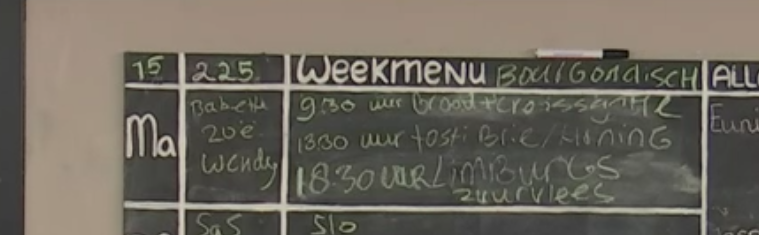 15 225 WEEKMENU BOURGONDISCH ALL
Ma Babette 9:30 uur brood + croissant
Zoë 13:30 uur tosti Brie/HONING
Wendy 18:30 UUR LIMBURGS
zuurvlees
SaS 510